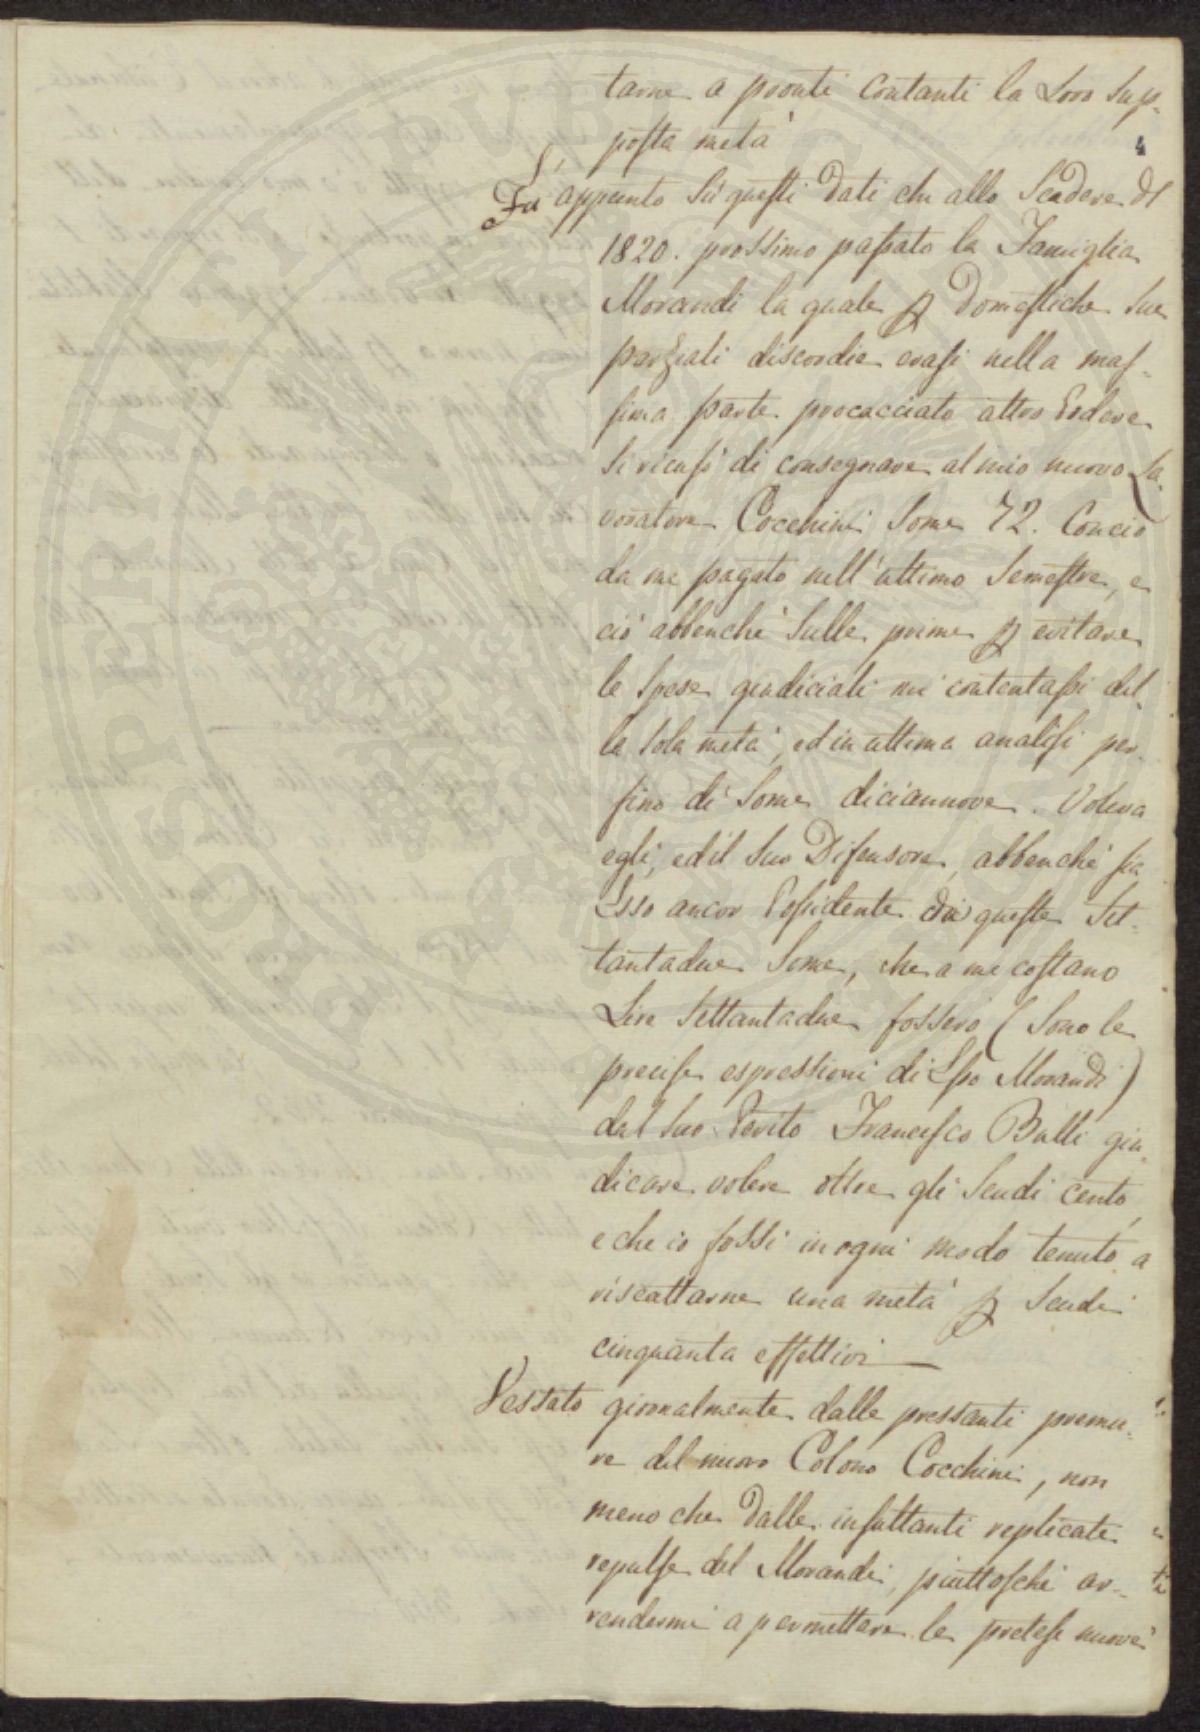 tarne a pronti Contanti la Loro Sup-
posta metà
4
Fù appunto Sù questi Dati che allo Scadere Del
1820. prossimo passato la Famiglia
Morandi la quale p Domestiche Sue
parziali discordie erasi nella mas-
sima parte procacciato altro Podere
Si ricusò di consegnare al mio nuovo La-
voratore Cocchini Some 72. Concio
da me pagato nell'ultimo Semestre, e
ciò abbenche Sulle prime p evitare
le Spese giudiciali mi contentassi del-
la Sola metà, ed in ultima analisi per-
fino di Some diciannove. Voleva
egli, ed il Suo Difensore, abbenchè sia
Esso ancor Possidente che queste Set-
tantadue Some, che a me costano
Lire Settantadue fossero (Sono le
precise espressioni di Esso Morandi)
dal Suo Perito Francesco Balli giu-
dicare valere oltre gli Scudi cento,
e che io fossi in ogni modo tenuto a
riscattarne una metà p Scudi
cinquanta effettivi —
Vessato giornalmente dalle pressanti premu-
re del nuovo Colono Cocchini, non
meno che Dalle insultanti replicate
repulse del Morandi, piuttoschè ar-
rendermi a permettere le pretese nuove